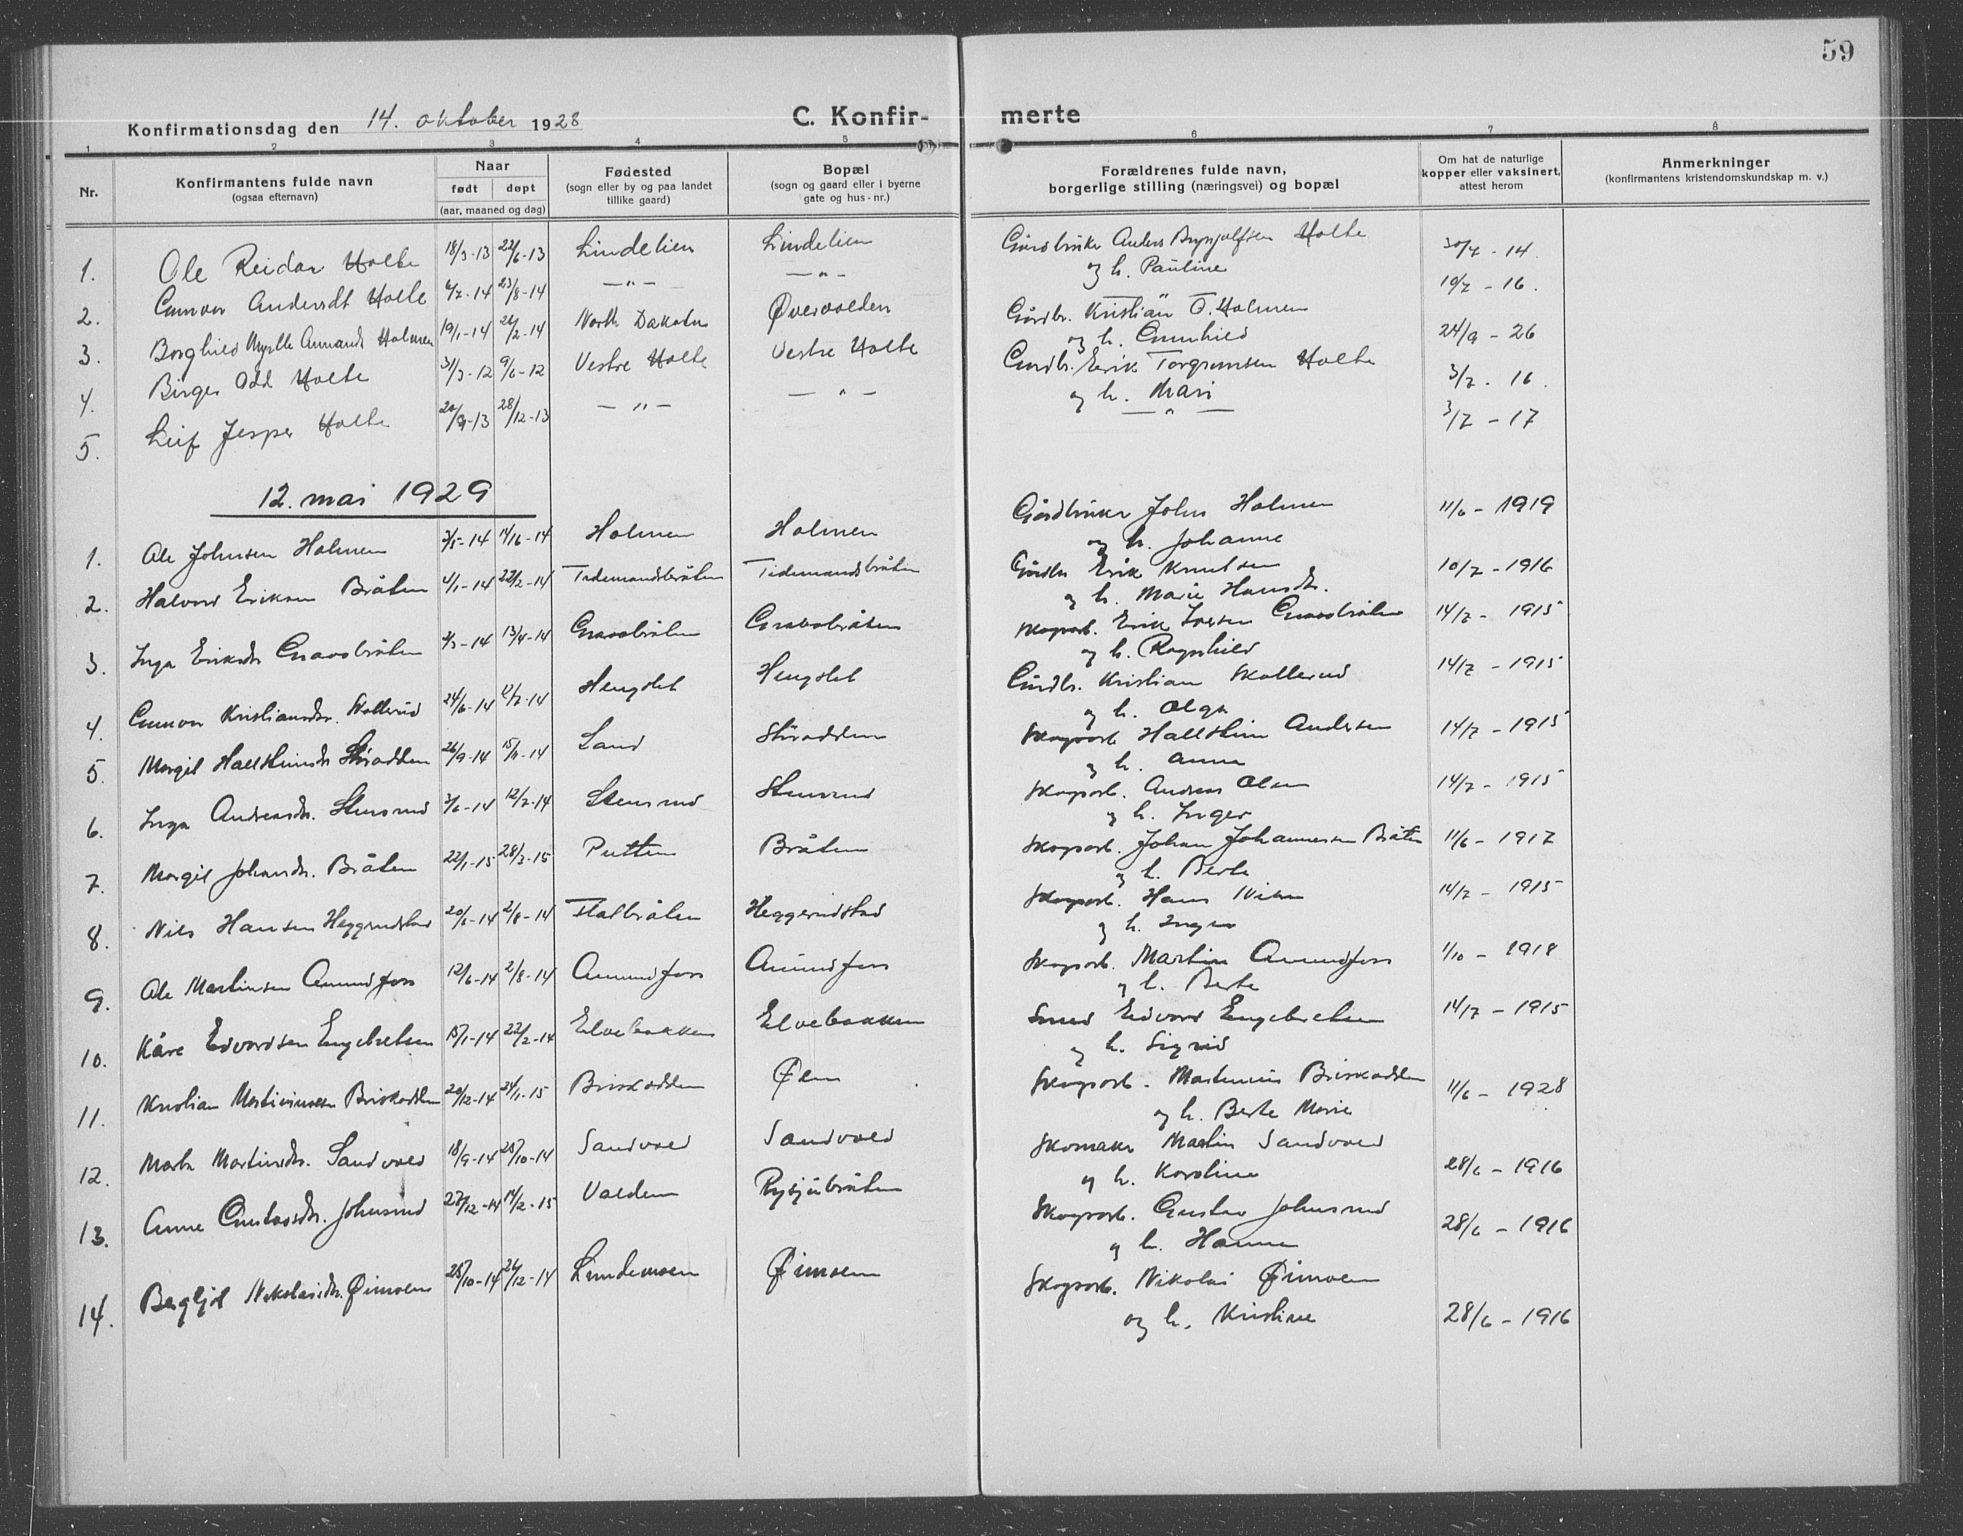 59
Konfirmationsdag den 14. oktober 1928
C. Konfir- merte
1 2 3 4 5 6 7 8
Nr.
Konfirmantens fulde navn
(ogsaa efternavn)
Naar
født døpt
(aar, maaned og dag)
Fødested
(sogn eller by og paa landet
tillike gaard)
Bopæl
(sogn og gaard eller i byerne
gate og hus-nr.)
Forældrenes fulde navn,
borgerlige stilling (næringsvei) og bopæl
Om hat de naturlige
kopper eller vaksinert,
attest herom
Anmerkninger
(konfirmantens kristendomskundskap m. v.)
1. Ole Reidar Holte 18/3-13 22/6-13 Lindelien Lindelien Gårdbruker Anders Brynjulfsen Holte 30/7 - 14
og h. Pauline
2. Gunvor Andersdt Holte 23/8-14 —"— —"— 10/7 - 16.
3. Borghild Annanda Holmen 19/1-14 North Dakota Øvervolden Gårdbr. Kristian O. Holmen 24/9 - 26
og h. Gunhild
4. Birger Odd Holte 31/3-12 9/6-12 Vestre Holte Vestre Holte Gardbr. Erik Torgrimsen Holte 3/7 - 16.
og h. Mari
5. Leif Jesper Holte 28/12-13 —"— —"— —"— 3/7 - 17
12. mai 1929
1. Ole Johnsen Holmen Holmen Holmen Gårdbruker John Holmen 11/6 - 1919
og h. Johanne
2. Halvord Eriksen Bråten 4/1-14 22/2-14 Tidemandsbråten Tidemandsbråten Gårdbr Erik Knutsen 10/7 - 1916
og h. Marie Hansdt.
3. Inga Eriksdr. Gravsbråten 13/4-14 Gravsbråten Gravsbråten Skogsarb. Erik Gravsbråten 14/7 - 1915
og h. Ragnhild
4. Gunvor Kristiansdr. Skollerud 24/6-14 12/7-14 Hengslet Hengslet Gårdbr. Kristian Skollerud 14/7 - 1915
og h. Olga
5. Margit Hallsteinsdr 26/9-14 15/11-14 Sand Skogsarb Hallstein Andersen 14/7 - 1915
og h. Anna
6. Inga Andreasdr. Stensrud 3/6-14 12/7-14 Stensrud Stensrud Skogsarb. Andreas Olsen 14/7 - 1915
og h. Inger
7. Margit Johansdr. Bråten 22/1-15 28/3-15 Putten Bråten Skogsarb. Johan Johannessen Bråten 11/6 - 1917
og h. Berte
8. Nils Hansen Heggerudstad 20/6-14 2/8-14 Flatbråten Heggerudstad Skogsarb. Hans Nilsen 14/7 - 1915
og h. Inger
9. Ole Martinsen Amundfoss 12/6-14 2/8-14 Amundfoss Amundfoss Skogsarb. Martin Amundfoss 1/10 - 1918
og h. Berte
10. Kåre Edvardsen Engebretsen 15/1-14 22/2-14 Elvebakken Elvebakken Smed Edvard Engebretsen 14/7 - 1915
og h. Sigrid
11. Kristian Martiniussen Briskodden 20/12-14 24/1-15 Briskodden Øen Skogsarb. Martinius Briskodden 11/6 - 1928
og h. Berte Marie
12. Marta Martinsdr. Sandvold 18/9-14 25/10-14 Sandvold Sandvold Skomaker Martin Sandvold 28/6 - 1916
og h. Karoline
13. Anne Gustavsdr. Johnsrud 27/12-14 14/2-15 Volden Skogsarb. Gustav Johnsrud 28/6 - 1916
og h. Hanna
14. Bergljot Nikolaisdr. Øimoen 25/10-14 26/12-14 Lindemoen Øimoen Skogsarb. Nikolai Øimoen
og h. Kristine 28/6 - 1916